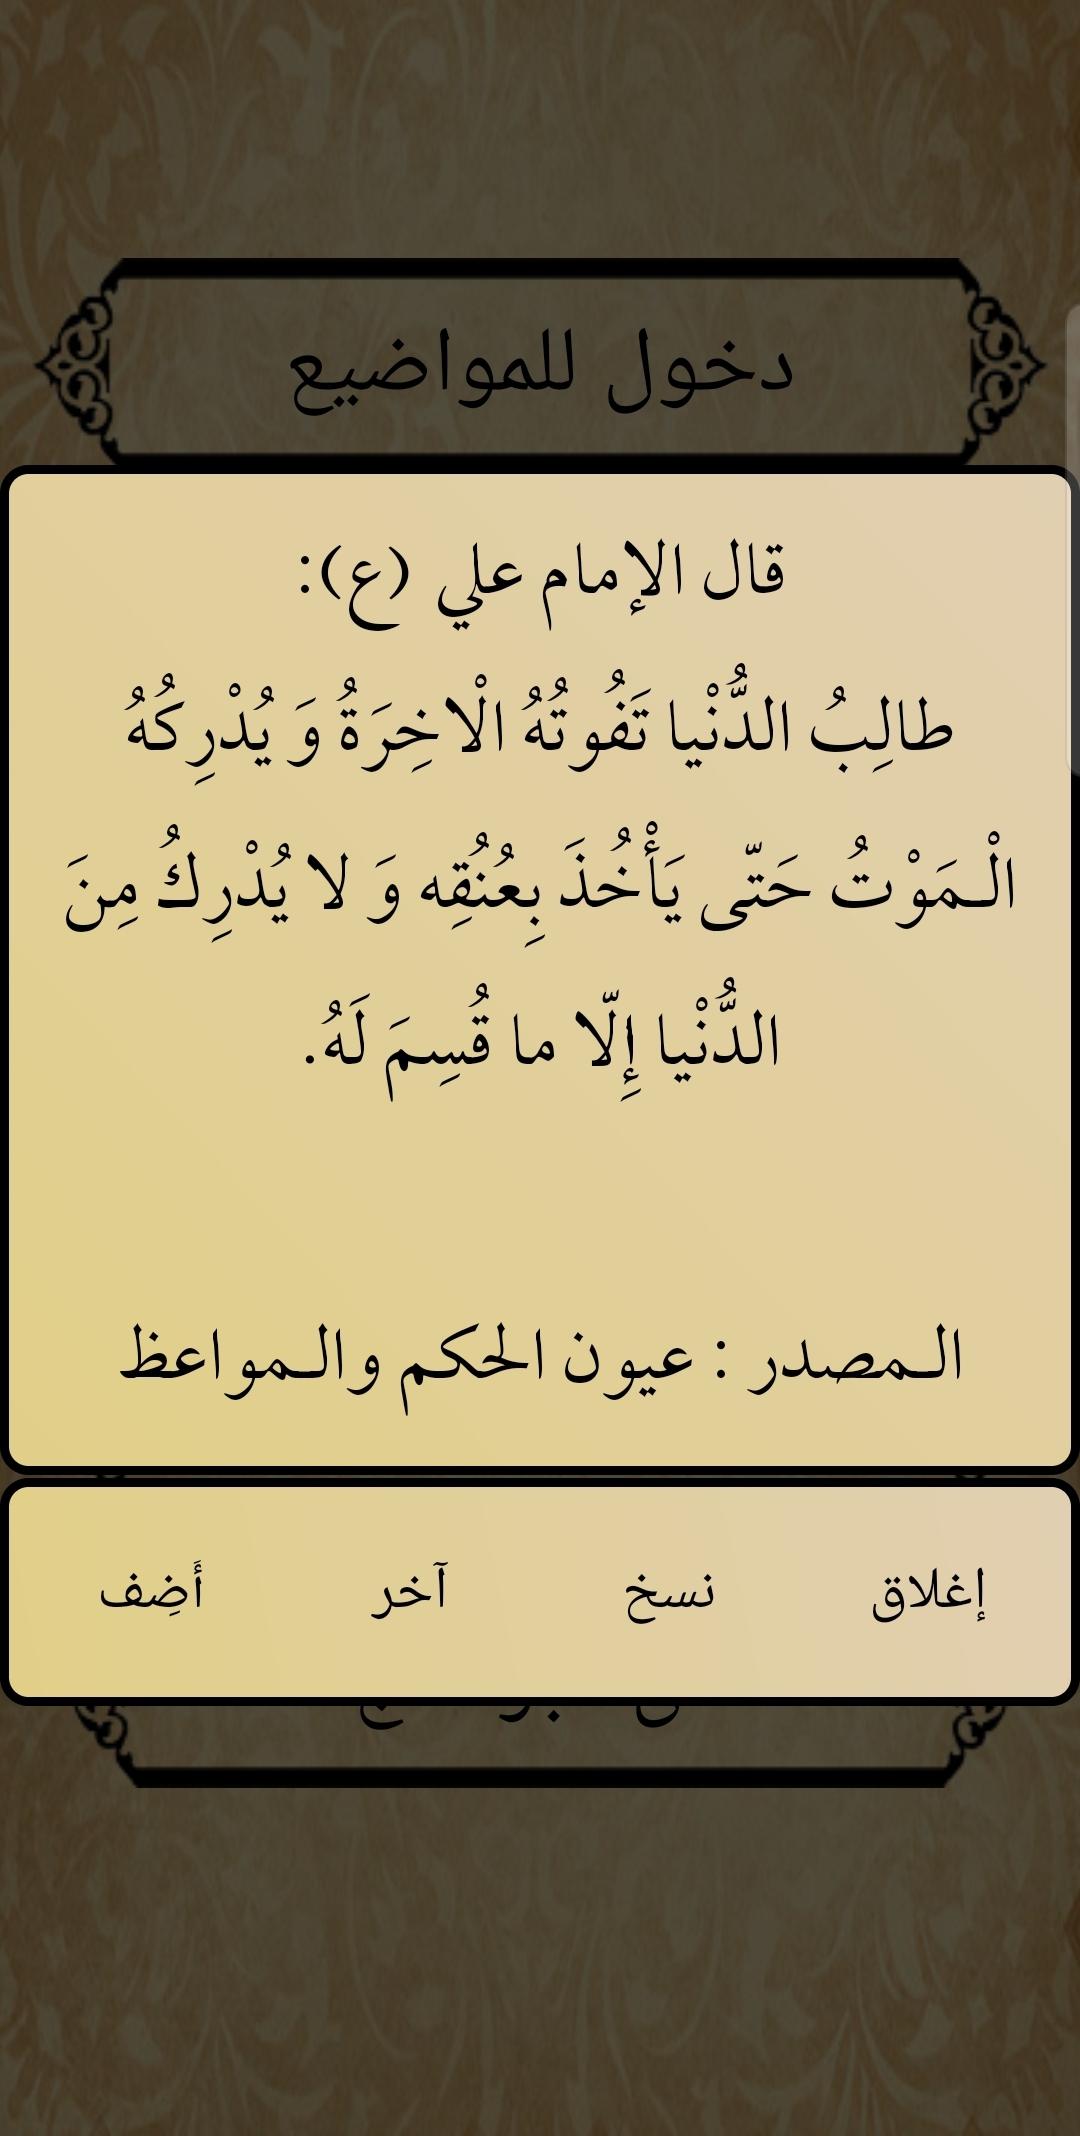 دخول للمواضيع
قال الإمام علي (ع):
طالِبُ الدُّنْيا تَفُوتُهُ الْاخِرَةُ وَ يُدْرِكهُ
الْـمَوْتُ حَتّى يَأْخُذَ بِعُنُقِه وَ لا يُدْرِكُ مِنَ
الدُّنْيا إِلّا ما قُسِمَ لَهُ.
الـمصدر : عيون الحكم والـمواعظ
إغلاق نسخ آخر أَضِف